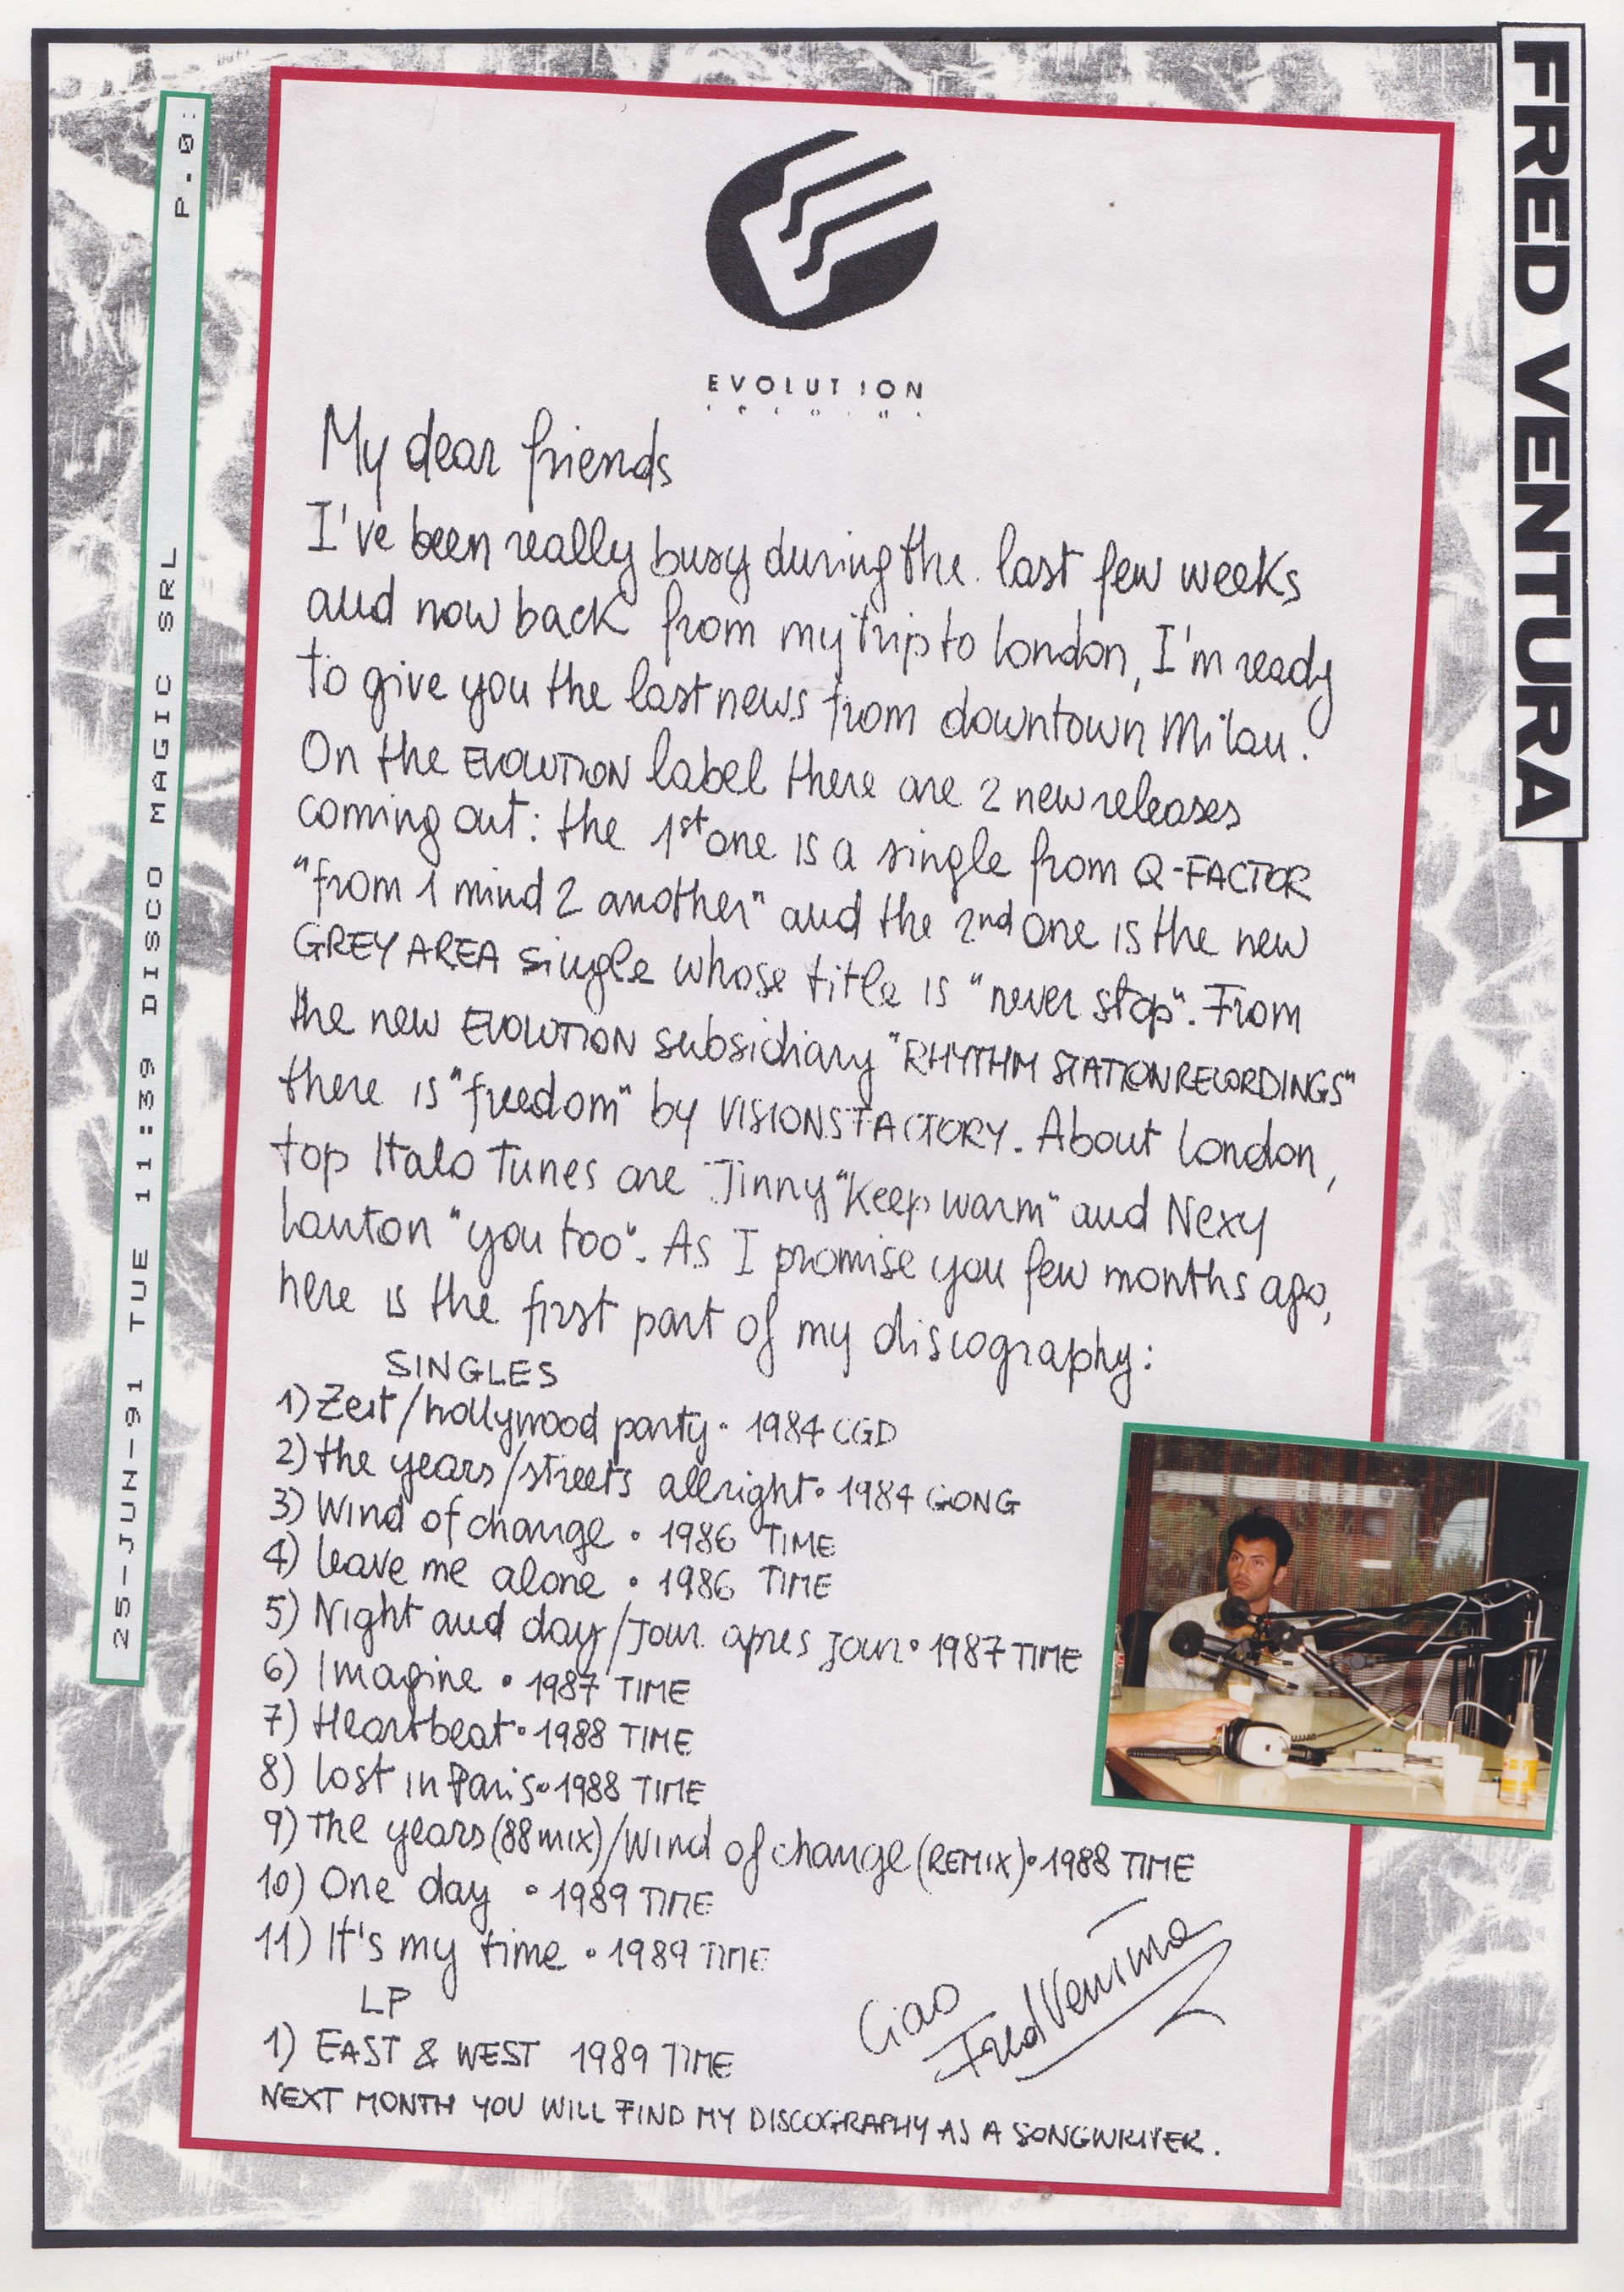 FRED VENTURA
25-JUN-91 TUE 11:39 DISCO MAGIC SRL P.0:
EVOLUTION
My dear friends
I've been really busy during the last few weeks
and now back from my trip to London, I'm ready
to give you the last news from downtown Milan.
On the EVOLUTION label there are 2 new releases
coming out: the 1st one is a single from Q-FACTOR
"from 1 mind 2 another" and the 2nd one is the new
GREY AREA single whose title is "never stop". From
the new EVOLUTION subsidiary "RHYTHM STATION RECORDINGS"
there is "freedom" by VISIONS FACTORY. About London,
top Italo Tunes are Jinny "Keep warm" and Nexy
Lanton "you too". As I promise you few months ago,
here is the first part of my discography:
SINGLES
1) Zeit/hollywood party • 1984 CGD
2) the years/streets allright • 1984 GONG
3) Wind of change • 1986 TIME
4) leave me alone • 1986 TIME
5) Night and day/Jour apres Jour • 1987 TIME
6) Imagine • 1987 TIME
7) Heartbeat • 1988 TIME
8) lost in Paris • 1988 TIME
9) The years (88 mix)/Wind of change (REMIX) • 1988 TIME
10) One day • 1989 TIME
11) It's my time • 1989 TIME
LP
1) EAST & WEST 1989 TIME
Ciao
Fred Ventura
NEXT MONTH YOU WILL FIND MY DISCOGRAPHY AS A SONGWRITER.